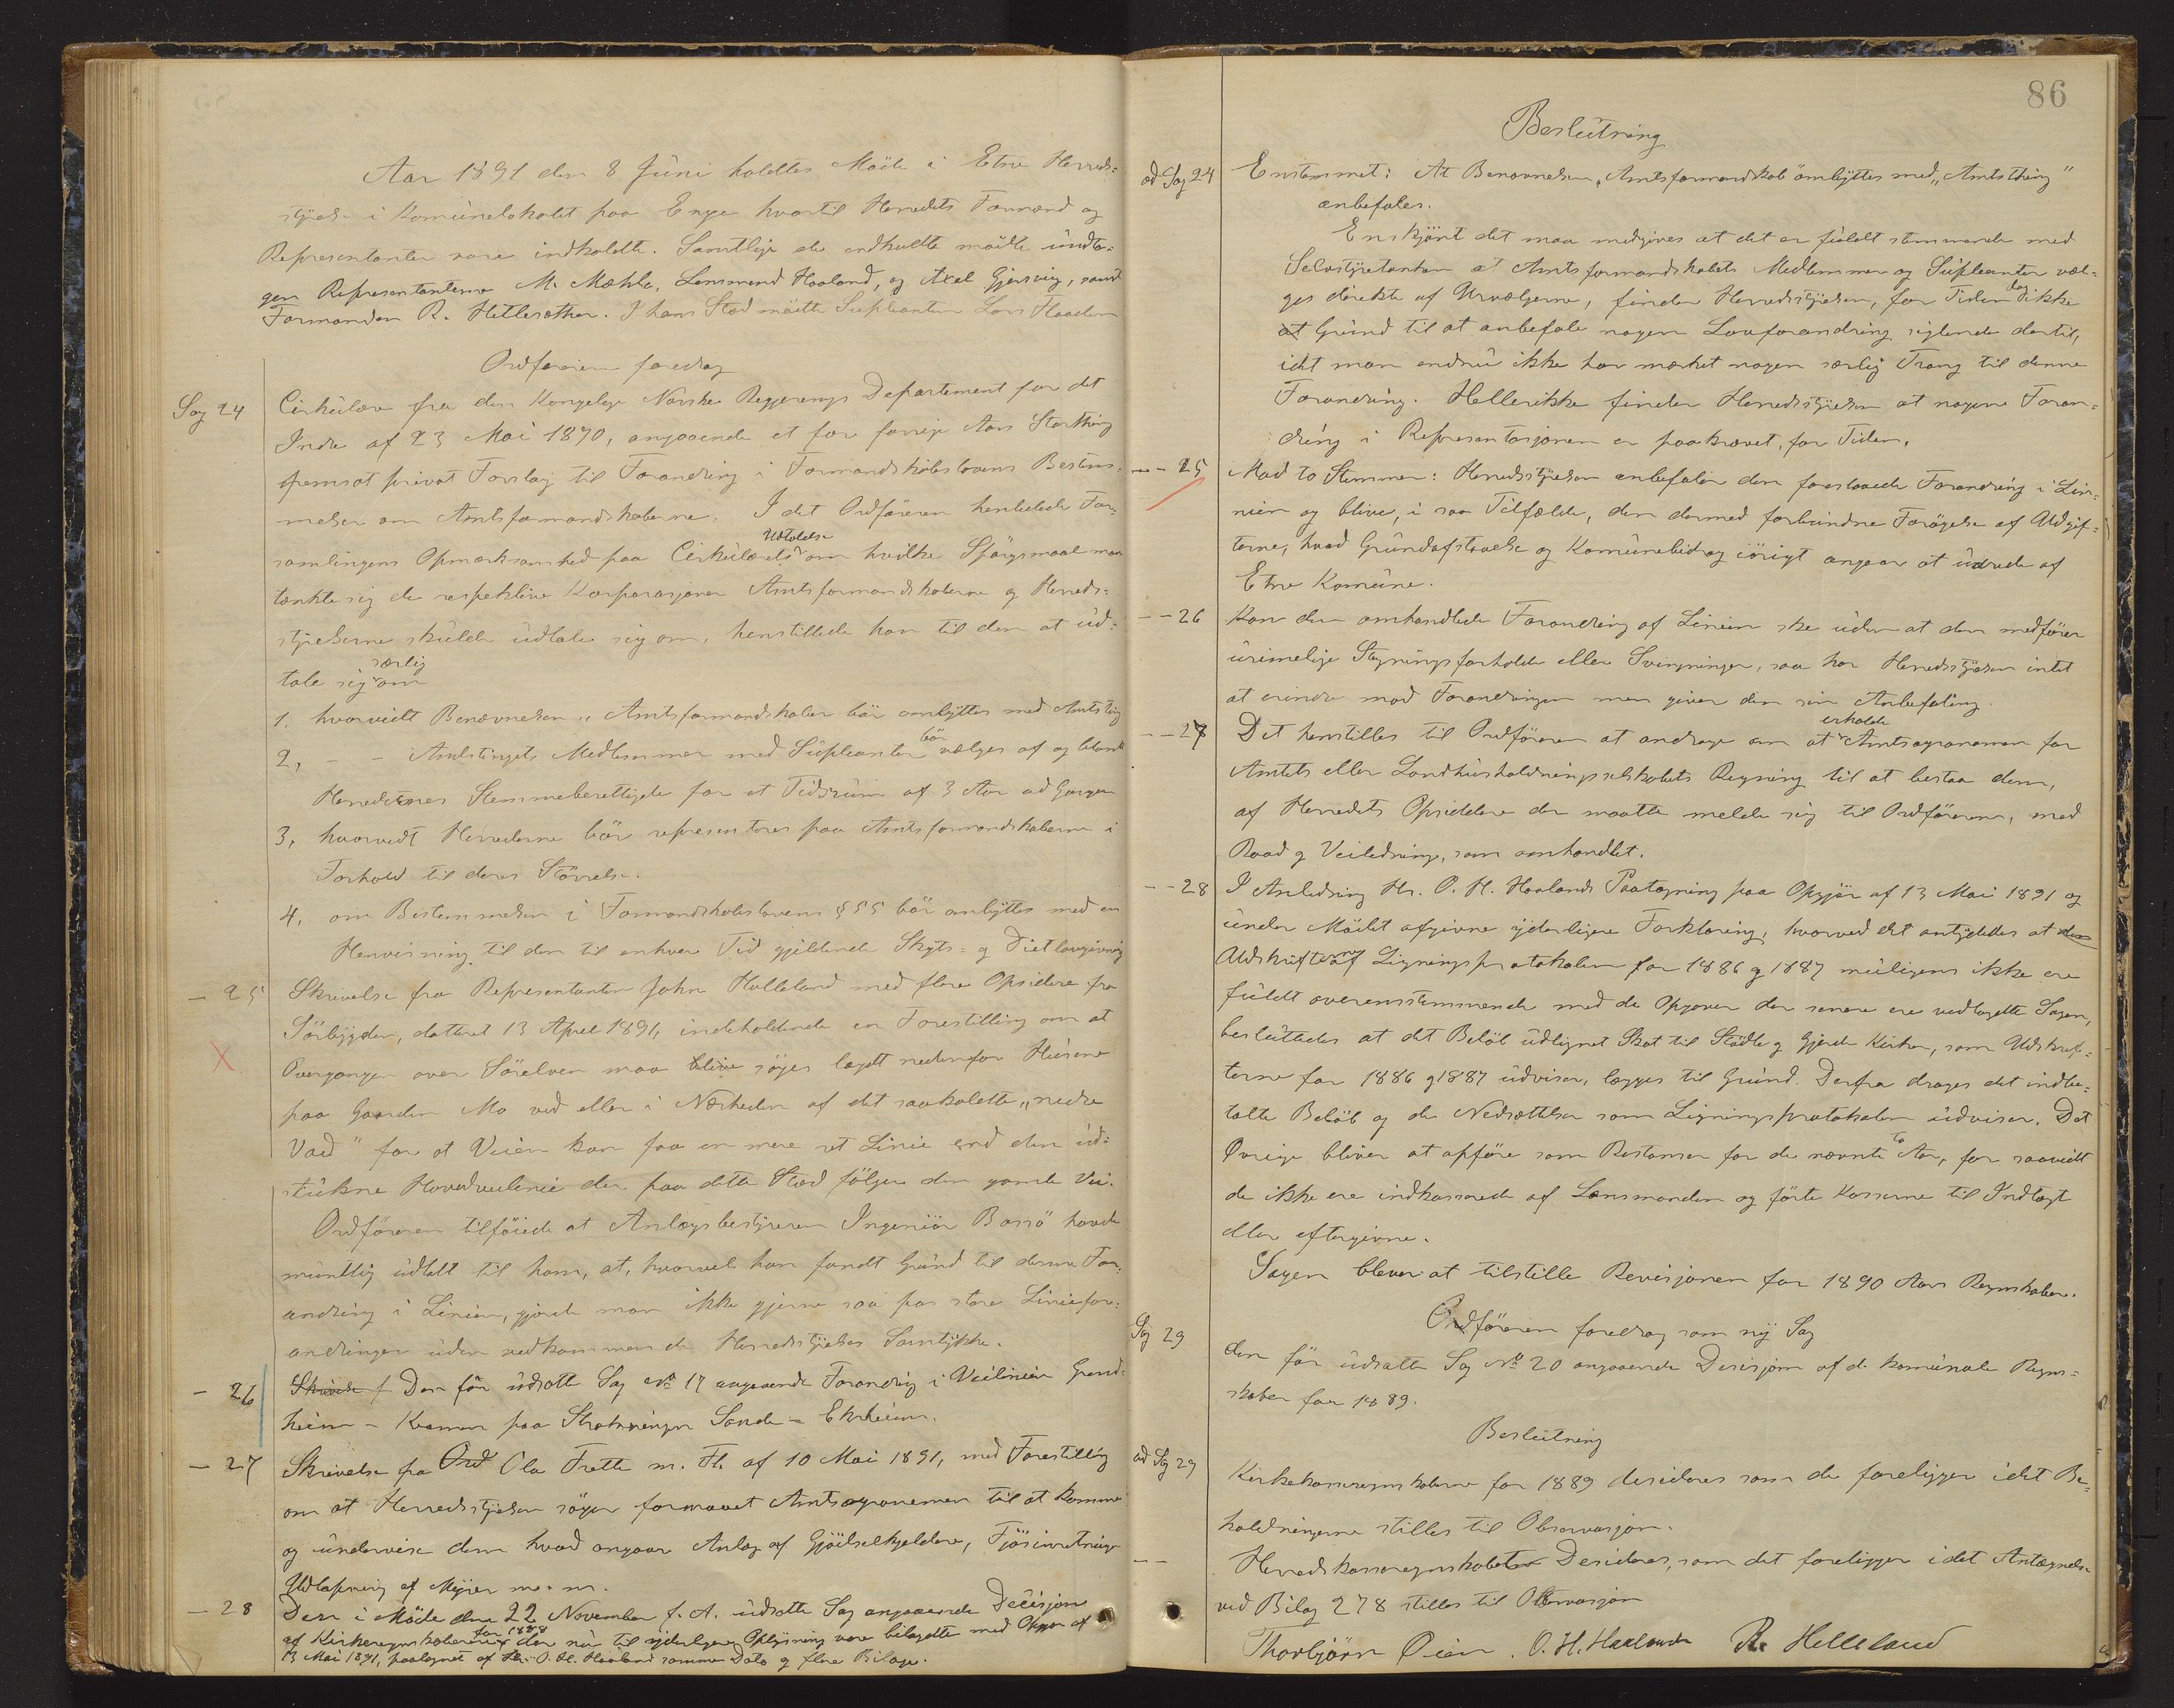 Aar 1891 den 8 Juni holdtes Möde i Etne Herreds=
styrelse i Komunelokalet paa Enge hvortil Herredets Formænd og
Repræsentanter vare indkaldte. Samtlige de indkaldte mödte undta=
gen Repræsentanterne M. Mæhle, Lensmand Haaland, og Axel Gjersvig, samt
Formanden R. Hetlesæther. I hans Sted mödte Supleanten Lars Flaaden
Ordföreren foredrog
Sag 24
Cirkulære fra den Kongelige Norske Regjerings Departement for det
Indre af 23 Mai 1890, angaaende et for forrige Aars Storthing
fremsat privat Forslag til Forandring i Formandskabslovens Bestem=
melser om Amtsformandskaberne. I det Ordföreren henledede For=
samlingens Opmærksomhed paa Cirkulærets Udtalelse om hvilke Spörgsmaal man
tænkte sig de respektive Korporasjoner Amtsformandskaberne og Herreds=
styrelserne skulde udtale sig om, henstillede han til dem at ud=
tale sig særlig om
1. hvorvidt Benævnelsen "Amtsformandskaber bör ombyttes med Amtsting
2, - - Amtstingets Medlemmer med Supleanter bör vælges af og blandt
Herredernes Stemmeberettigede for et Tidsrum af 3 Aar ad Gangen
3, hvorvidt Herrederne bör repræsenteres paa Amtsformandskaberne i
Forhold til deres Störrelse.
4, om Bestemmelsen i Formandskabslovens § 55 bör ombyttes med en
Henvisning til den til enhver Tid gjeldende Skyts= og Dietlovgivning
- 25
Skrivelse fra Repræsentanten John Helleland med flere Opsidere fra
Sörbygden, datteret 13 April 1891, indeholdende en Forestilling om at
Overgangen over Sörelven maa blive söges lagdt nedenfor Husene
paa Gaarden Mo ved eller i Nærheden af det saakaldte "nedre
Vad" for at Veien kan faa en mere ret Linie end den ud=
stukne Hovedveilinie der paa dette Sted fölger den gamle Vei.
Ordföreren tilföiede at Anlægsbestyreren Ingeniör Barsö havde
mundtlig udtalt til ham, at, hvorvel han fandt Grund til denne For=
andring i Linien, gjorde man ikke gjerne saa pas store Liniefor=
andringer uden vedkommende Herredsstyrelses Samtykke.
- 26
Skrivelse f Den för udsatte Sag No 17 angaaende Forandring i Veilinien Grind=
heim - Kvammen paa Strækningen Sande - Ekrheim.
- 27
Skrivelse fra Ord Ola Frette m. Fl. af 10 Mai 1891, med Forestilling
om at Herredsstyrelsen söger formaaet Amtsagronomen til at komme
og undervise dem hvad angaar Anlæg af Gjödselkjeldere, Fjösinretninger
Udtapning af Myrer m. m.
- 28
Den i Möde den 22 November f. A. udsatte Sag angaaende Decisjon
af Kirkeregnskaberne for 1888 der nu til yderligere Oplysning vare bilagdte med Opgjör af
13 Mai 1891, paategnet af Hr. O. H. Haaland samme Dato og flere Bilage.
86
Beslutning
ad Sag 24
Enstemmet: At Benævnelsen "Amtsformandskab" ombyttes med "Amtsthing"
anbefales.
Enskjönt det maa medgives at det er fuldt stemmende med
Selvstyretanken at Amtsformandskabets Medlemmer og Supleanter væl=
ges direkte af Urvælgerne, finder Herredsstyrelsen, for Tiden dog ikke
at Grund til at anbefale nogen Lovforandring sigtende dertil,
idet man endnu ikke har mærket nogen særlig Trang til denne
Forandring. Hellerikke finder Herredsstyrelsen at nogen Foran=
dring i Repræsentasjonen er paakrævet, for Tiden.
- - 25
Mod to Stemmer: Herredsstyrelsen anbefaler den foreslaaede Forandring i Lin=
nien og blive, i saa Tilfælde, den dermed forbundne Forögelse af Udgif=
terne, hvad Grundafstaaelse og Komunebidrag iörigt angaar at udrede af
Etne Komune.
- - 26
Kan den omhandlede Forandring af Linien ske uden at den medförer
urimelige Stigningsforholde eller Svingninger, saa har Herredsstyrelsen intet
at erindre mod Forandringen men giver den sin Anbefaling.
- - 27
Det henstilles til Ordföreren at andrage om at erholde Amtsagronomen for
Amtets eller Landhusholdningsselskabets Regning til at bistaa dem,
af Herredets Opsiddere der maatte melde sig til Ordföreren, med
Raad og Veiledning, som omhandlet.
- - 28
I Anledning Hr. O. H. Haalands Paategning paa Opgjör af 13 Mai 1891 og
under Mödet afgivne yderligere Forklaring, hvorved det antydedes at den
Udskrifterne af Ligningsprotokolen for 1886 og 1887 muligens ikke ere
fuldt overensstemmende med de Opgaver der senere ere vedlagdte Sagen,
besluttedes at det Belöb udlignet Skat til Stödle og Gjerde Kirker, som Udskrif=
terne for 1886 og 1887 udviser, lægges til Grund. Derfra drages det indbe=
talte Belöb og de Nedsættelser som Ligningsprotokolen udviser. Det
Övrige bliver at opföre som Restanser for de nævnte to Aar, for saavidt
de ikke ere indkasserede af Lensmanden og förte Kasserne til Indtægt
eller eftergivne.
Sagen bliver at tilstille Revisjonen for 1890 Aars Regnskaber.
Ordföreren foredrog som ny Sag
Sag 29
den för udsatte Sag No 20 angaaende Desisjon af de komunale Regn=
skaber for 1889.
Beslutning
ad Sag 29
Kirkekasseregnskaberne for 1889 desideres som de foreligger idet Be=
holdningerne stilles til Observasjon.
- -
Herredskasseregnskabet Desideres, som det foreligger idet Antegnelse
ved Bilag 278 stilles til Observasjon
Thorbjörn Öien. O. H. Haaland R. Helleland